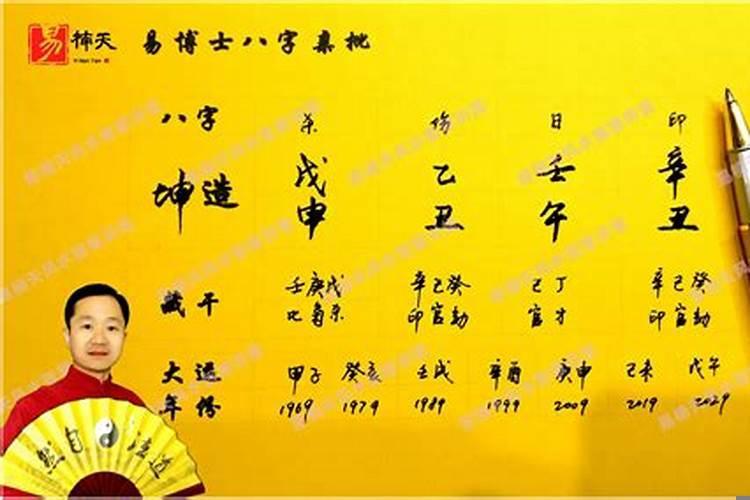 易 楠天 易博士八字集批
八字 杀 伤 日 印
坤造 戊申 乙丑 壬午 辛丑
藏干 壬庚戊 辛己癸 己丁 辛己癸
比枭杀 印官劫 官才 印官劫
大运 甲子 癸亥 壬戌 辛酉 庚申 己未 戊午
年份 1969 1979 1989 1999 2009 2019 2029
道法自然